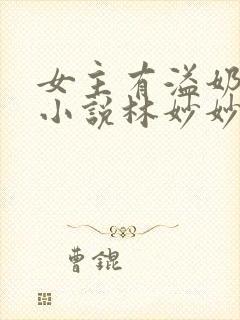 女主有溢奶
小說林妙妙
曹錕